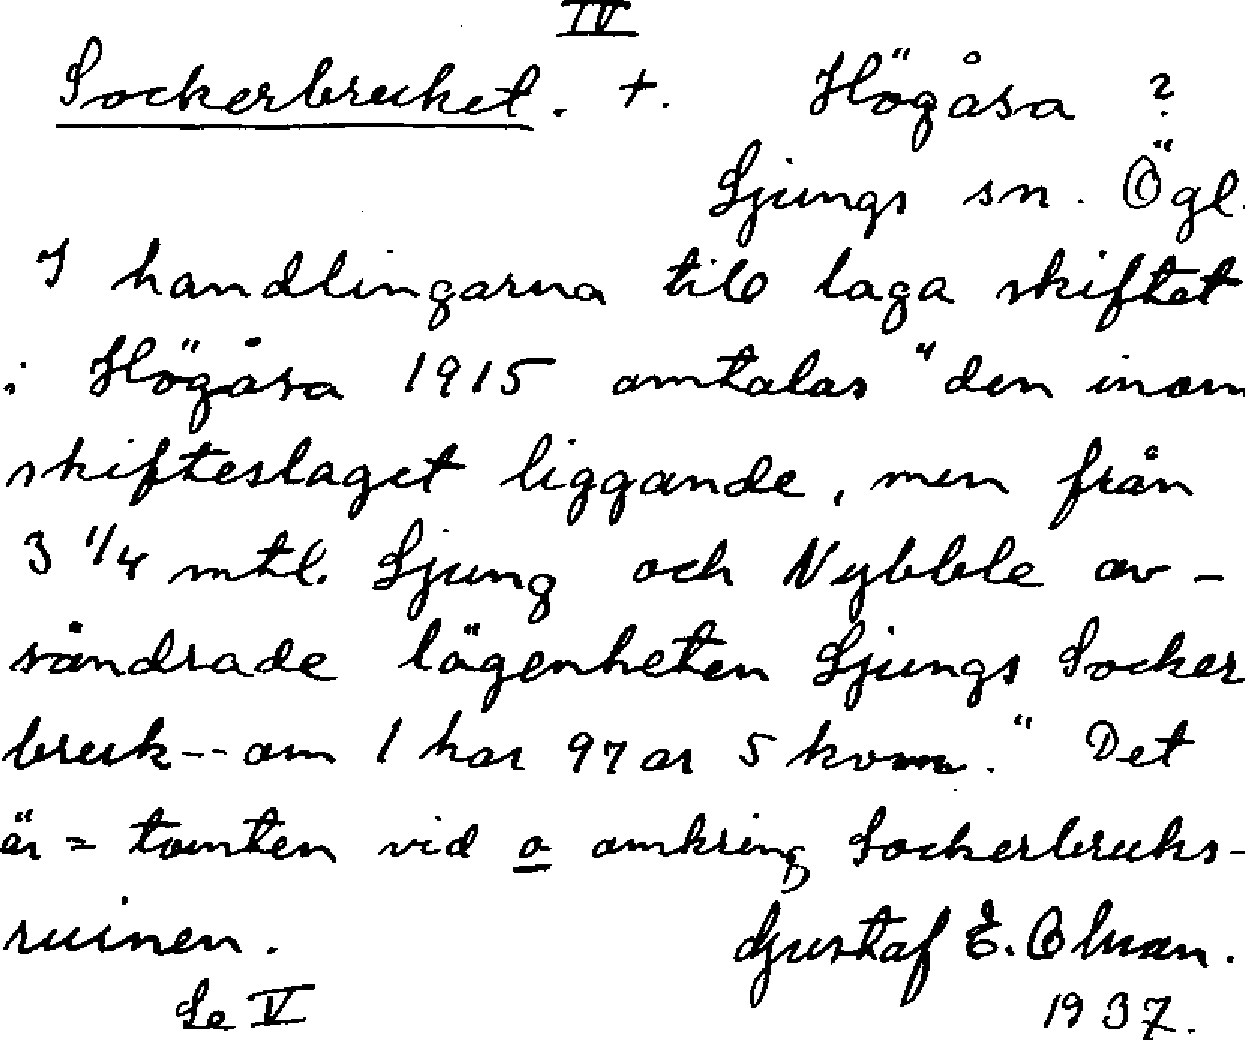 IV
Sockerbruket. +. Högåsa ?
Ljungs sn. Ögl.
I handlingarna till laga skiftet
i Högåsa 1915 omtalas "den inom
skifteslaget liggande, men från
3 1/4 mtl. Ljung och Nybble av-
söndrade lägenheten Ljungs Socker
bruk -- om 1 har 97 ar 5 kvm." Det
är = tomten vid o omkring Sockerbruks-
ruinen. Gustaf E. Ohman.
Se V 1937.